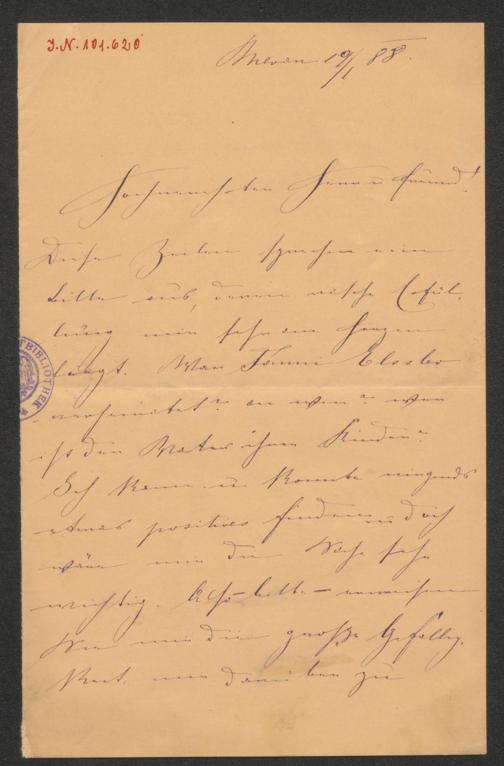 J.N. 191.620
Meran 19/1 88.
Hochverehrter Herr u Freund!
Diese Zeilen sprechen eine
Bitte aus, deren rasche Erfül-
lung mir sehr am Herzen
liegt. War Fanni Elssler
verheiratet? an wen? wer
ist der Vater ihrer Kinder?
Ich kann u konnte nirgends
etwas positives finden u doch
wäre mir die Sache sehr
wichtig. Also – bitte – erweisen
Sie mir die große Gefällig-
keit, mir darüber zu
TBIBLIOTHEK